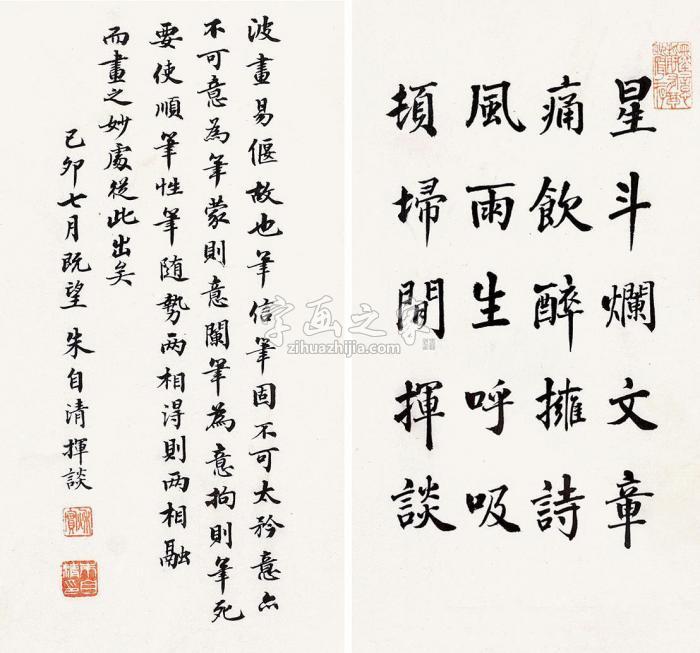 星斗爛文章
痛飲醉擁詩
風雨生呼吸
頓埽閒揮談
波畫易偃故也筆信筆固不可太矜意亦
不可意為筆蒙則意闌筆為意拘則筆死
要使順筆性筆随勢两相得則两相融
而畫之妙處從此出矣
己卯七月既望 朱自清揮談
字画之家
zihuazhijia.com